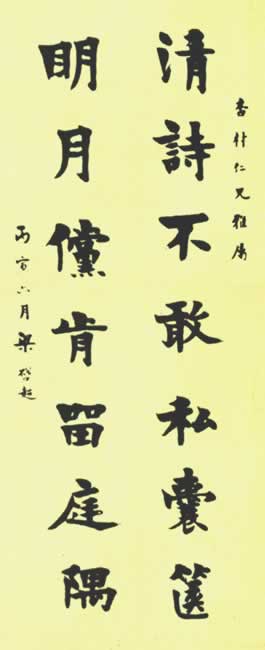 香村仁兄雅属
清詩不敢私囊篋
明月儻肯留庭隅
丙寅六月梁啓超